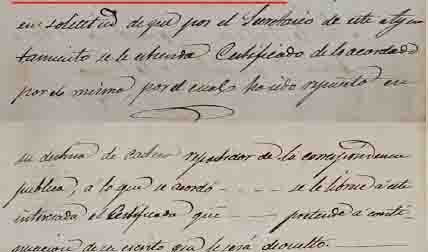 en solicitud de que por el Secretario de este Ayun
tamiento se le estienda Certificado de lo acordado
por el mismo por el cual ha sido repuesto en
su destino de Cartero repartidor de la correspondencia
publica, á lo que se acordó - - - - se le libre á este
interesado el Certificado que - - - - pretende á conti
nuacion de su escrito que le será devuelto.